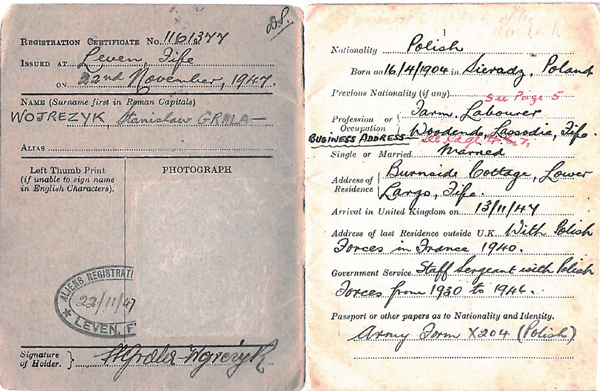 REGISTRATION CERTIFICATE No. 1161377
ISSUED AT Leven, Fife
ON 22nd November, 1947.
NAME (Surname first in Roman Capitals)
WOJREZYK, Stanislaw GRALA-
ALIAS
Left Thumb Print
(if unable to sign name
in English Characters).
PHOTOGRAPH
ALIENS REGISTRATI
22/11/47
LEVEN, F
Signature
of Holder.
1
Nationality Polish
Born on 16/4/1904 in Sieradz, Poland
Previous Nationality (if any)
See Page 5
Profession or
Occupation
Farm Labourer
BUSINESS ADDRESS- Woodend, Lassodie, Fife.
See page
Single or Married Married
Address of
Residence
Burnside Cottage, Lower
Largo, Fife.
Arrival in United Kingdom on 13/11/47
Address of last Residence outside U.K. With Polish
Forces in France 1940.
Government Service Staff Sergeant with Polish
Forces from 1930 to 1946.
Passport or other papers as to Nationality and Identity.
Army Form X204 (Polish)